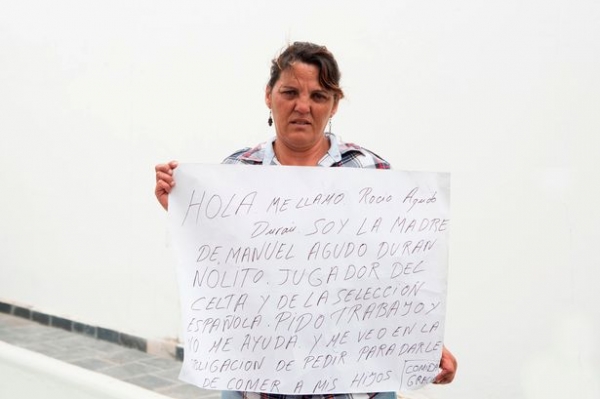 HOLA ME LLAMO Rocio Agudo
Duran SOY LA MADRE
DE MANUEL AGUDO DURAN
NOLITO. JUGADOR DEL
CELTA Y DE LA SELECCION
ESPAÑOLA. PIDO TRABAJO Y
NO ME AYUDA Y ME VEO EN LA
OBLIGACION DE PEDIR PARA DARLE
DE COMER A MIS HIJOS COMIDA